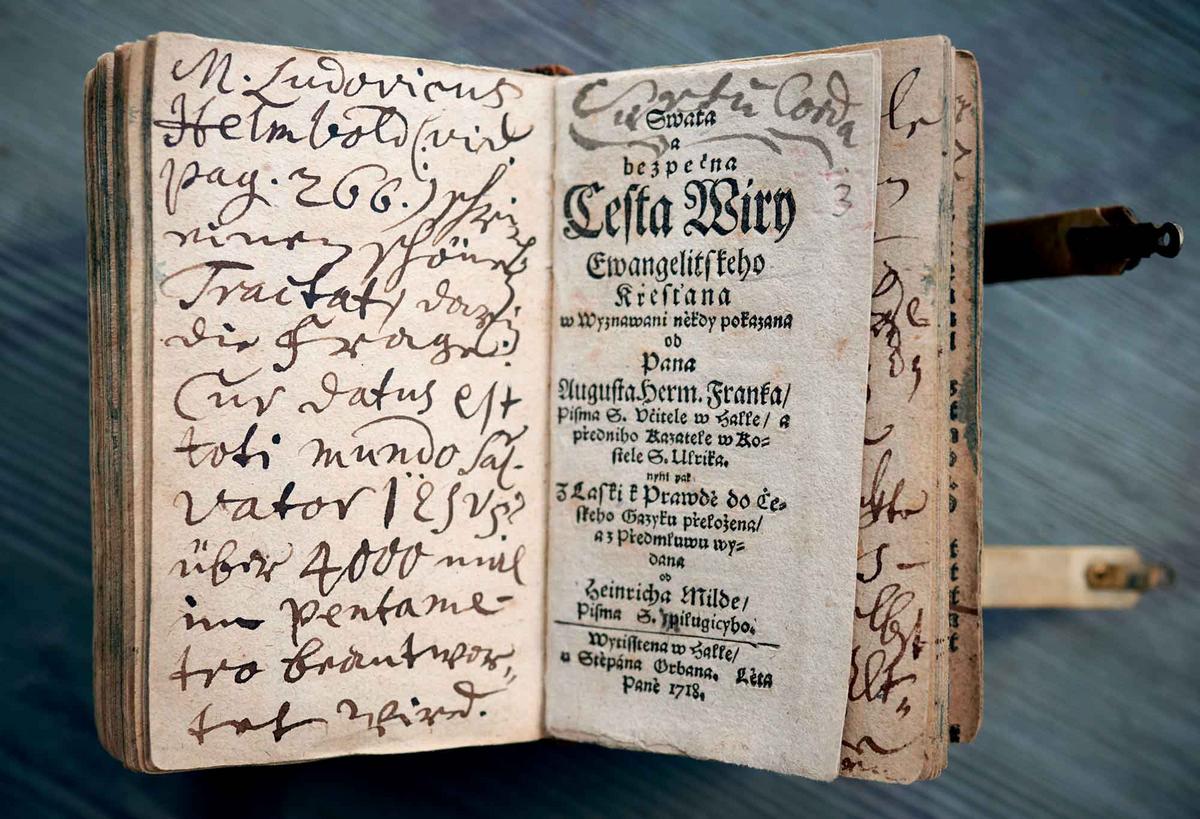 M. Ludovicus
Helmbold (vid
pag. 266.) schri
einen schönen
Tractat, darin
die Frage:
Cur datus est
toti mundo Sal-
vator IESVS?
über 4000 mal
im pentame-
tro beantwor-
tet wird.
Corda
3
Swata
a
bezpečna
Cesta Wiry
Ewangelitskeho
Křesťana
w Wyznawani někdy pokazana
od
Pana
Augusta Herm. Franka/
Pisma S. Včitele w Halle/ a
předniho Kazatele w Ko=
stele S. Ulrika.
nyni pak
Z Laski k Prawdě do Če=
skeho Gazyku přeložena/
a z Předmluwu wy=
dana
od
Heinricha Milde/
Pisma S. zpilugicyho.
Wytisstena w Halle/
u Stěpána Orbana. Léta
Paně 1718.